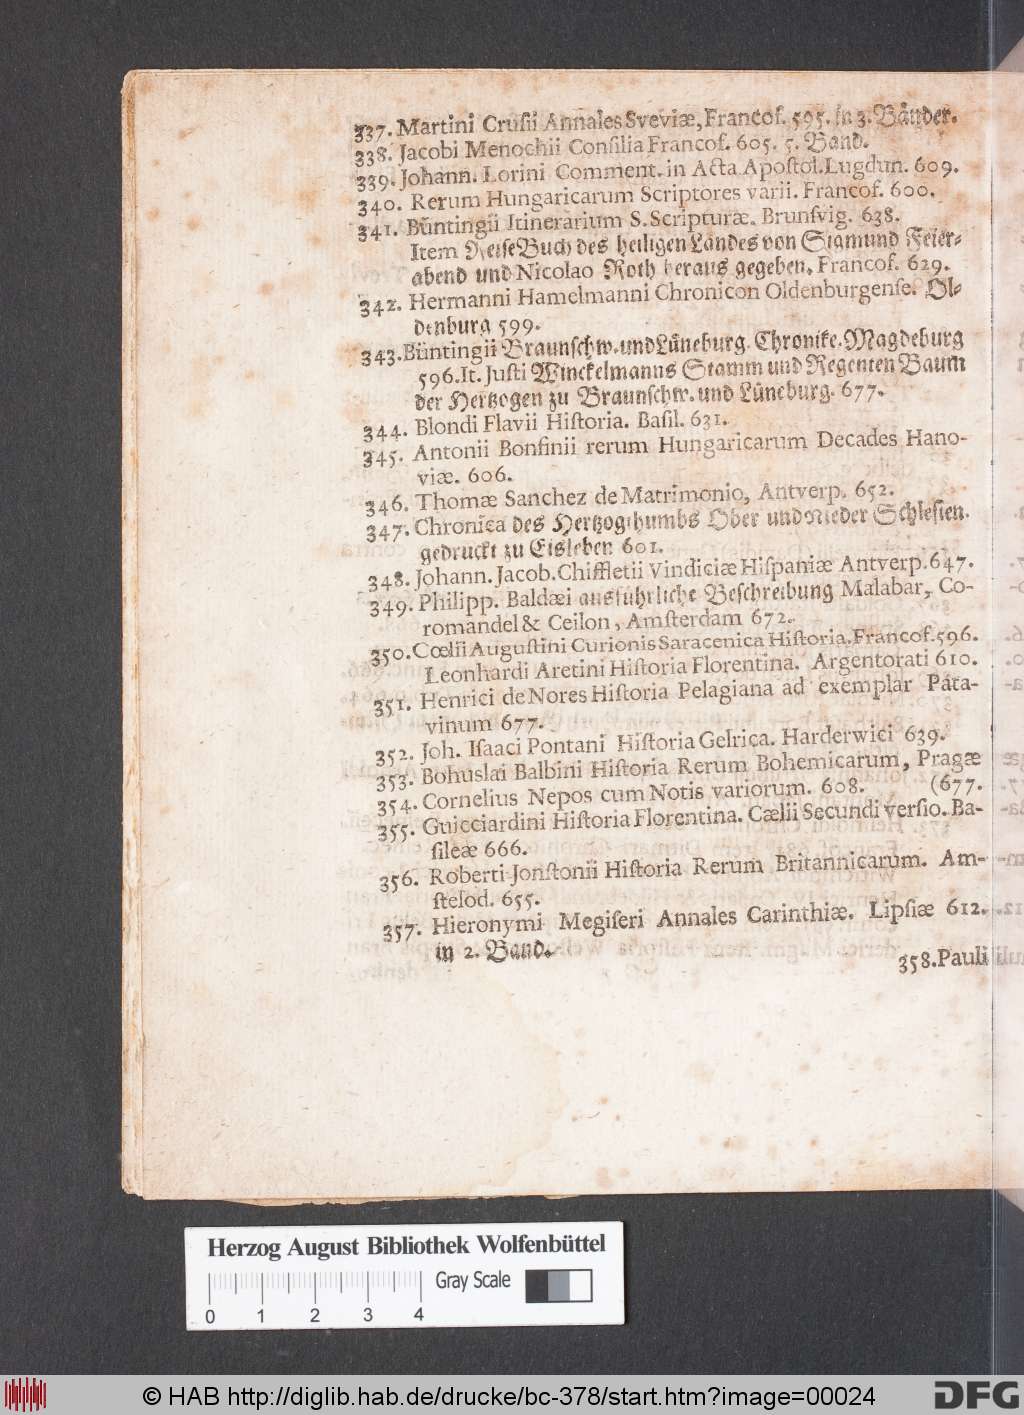 337. Martini Crusii Annales Sveviæ, Francof. 595. in 3. Bånder.
338. Jacobi Menochii Consilia Francof. 605. 5. Band.
339. Johann. Lorini Comment. in Acta Apostol. Lugdun. 609.
340. Rerum Hungaricarum Scriptores varii. Francof. 600.
341. Büntingii Itinerarium S. Scripturæ. Brunsvig. 638.
Item ReiseBuch des heiligen Landes von Sigmund Feier-
abend und Nicolao Roth heraus gegeben, Francof. 629.
342. Hermanni Hamelmanni Chronicon Oldenburgense. Ol-
denburg 599.
343. Büntingii Braunschw. und Lůneburg. Chronike. Magdeburg
596. It. Justi Winckelmanns Stamm und Regenten Baum
der Hertzogen zu Braunschw. und Lůneburg. 677.
344. Blondi Flavii Historia. Basil. 631.
345. Antonii Bonfinii rerum Hungaricarum Decades Hano-
viæ. 606.
346. Thomæ Sanchez de Matrimonio, Antverp. 652.
347. Chronica des Hertzogthumbs Ober und Nieder Schlesien.
gedruckt zu Eisleben 601.
348. Johann. Jacob. Chiffletii Vindiciæ Hispaniæ Antverp. 647.
349. Philipp. Baldæi ausführliche Beschreibung Malabar, Co-
romandel & Ceilon, Amsterdam 672.
350. Cœlii Augustini Curionis Saracenica Historia, Francof. 596.
Leonhardi Aretini Historia Florentina. Argentorati 610.
351. Henrici de Nores Historia Pelagiana ad exemplar Pata-
vinum 677.
352. Joh. Isaaci Pontani Historia Gelrica. Harderwici 639.
353. Bohuslai Balbini Historia Rerum Bohemicarum, Pragæ
354. Cornelius Nepos cum Notis variorum. 608. (677.
355. Guicciardini Historia Florentina. Cælii Secundi versio. Ba-
sileæ 666.
356. Roberti Jonstonii Historia Rerum Britannicarum. Am-
stelod. 655.
357. Hieronymi Megiseri Annales Carinthiæ. Lipsiæ 612.
in 2. Band.
358. Pauli
Herzog August Bibliothek Wolfenbüttel
Gray Scale
0 1 2 3 4
© HAB http://diglib.hab.de/drucke/bc-378/start.htm?image=00024
DFG